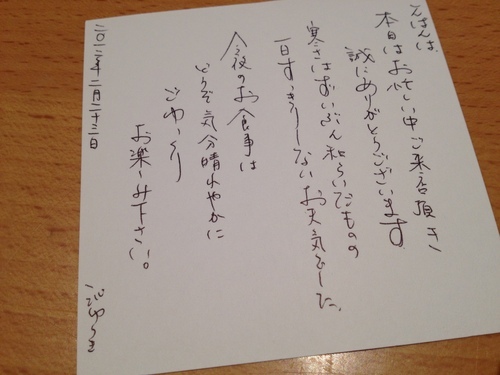 こんばんは、
本日はお忙しい中ご来店頂き
誠にありがとうございます
寒さはずいぶん和らいだものの
一日すっきりしないお天気でした。
今夜のお食事は
どうぞ気分晴れやかに
ごゆっくり
お楽しみ下さい。
二〇一二年二月二十三日